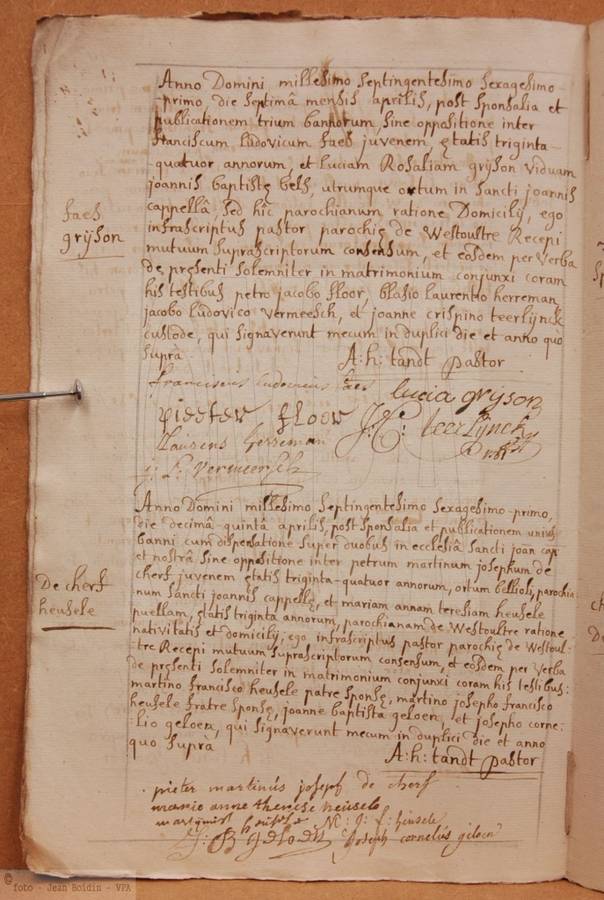 Anno Domini millesimo septingentesimo sexagesimo
-primo, die septimâ mensis aprilis, post sponsalia et
publicationem trium bannorum, sine oppositione inter
franciscum ludovicum faes juvenem, ętatis triginta-
-quatuor annorum, et luciam Rosaliam gryson viduam
joannis baptistę bels, utrumque ortum in sancti joannis
cappellâ, sed hîc parochianum ratione Domicilij, ego
infrascriptus pastor parochię de Westoultre Recepi
mutuum suprascriptorum consensum, et eosdem per verba
de pręsenti solemniter in matrimonium conjunxi coram
his testibus petro jacobo floor, blasio laurentio herreman
jacobo ludovico vermeesch, et joanne crispino teerlijnck
custode, qui signaverunt mecum in duplici die et anno quo
suprà
A: h: tandt pastor
faes
gryson
franciscus ludovicus faes
lucia gryson
pieeter floor
J: C: teerlijnck
laurens herreman
j: L: vermeersch
Anno Domini millesimo septingentesimo sexagesimo-primo,
die decimâ quintâ aprilis, post sponsalia et publicationem unius
banni cum dispensatione super duobus in ecclesiâ sancti joan cap
et nostrâ sine oppositione inter petrum martinum josephum de
cherf juvenem ętatis triginta-quatuor annorum, ortum belliols, parochia
num sancti joannis cappellę, et mariam annam teresiam heusele
puellam, ętatis triginta annorum, parochianam de Westoultre ratione
nativitatis et domicilij, ego infrascriptus pastor parochię de Westoul-
tre Recepi mutuum suprascriptorum consensum, et eosdem per verba
de pręsenti solemniter in matrimonium conjunxi coram his testibus:
martino francisco heusele patre sponsę, martino josepho francisco
heusele fratre sponsę, joanne baptista geloen, et josepho corne:
lio geloen, qui signaverunt mecum in duplici die et anno
quo suprà
A: h: tandt pastor
De cherf
heusele
pieter martinus joseph de cherf
marie anne therese heusele
M: J: f: heusele
Joseph cornelius geloen
© foto - Jean Boidin - VPA